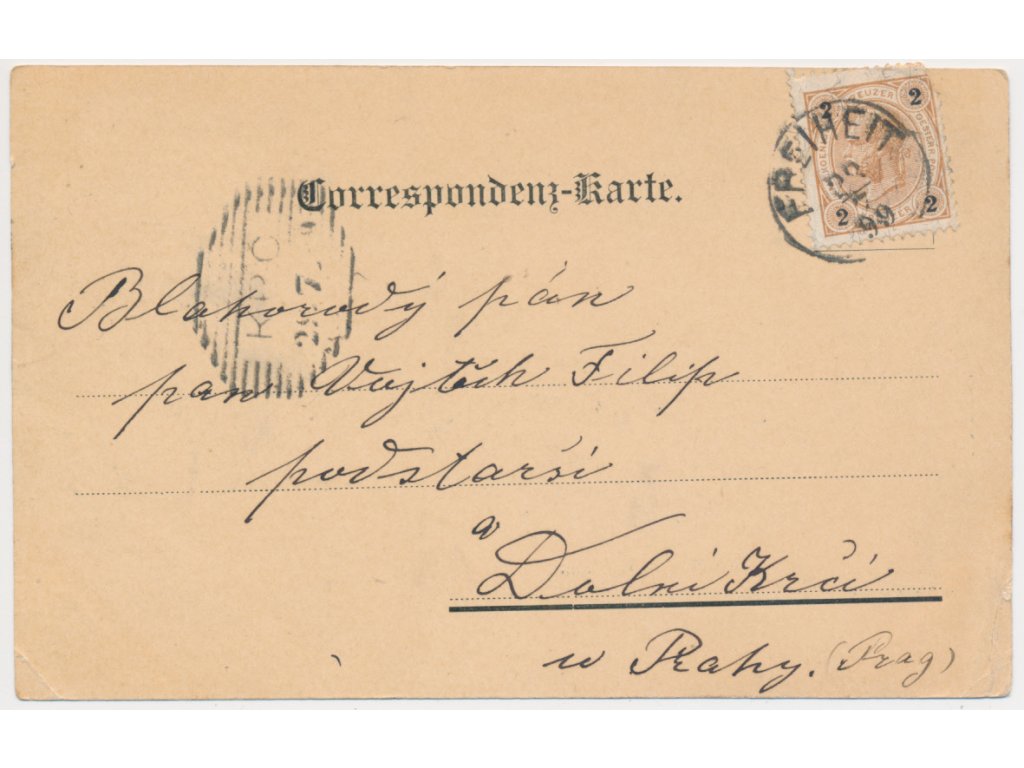 Correspondenz-Karte.
2 2
2 2
FREIHEIT
22
99
KRČ
Blahorodý pán
pan Vojtěch Filip
podstarší
v
Dolní Krči
u Prahy. (Prag)